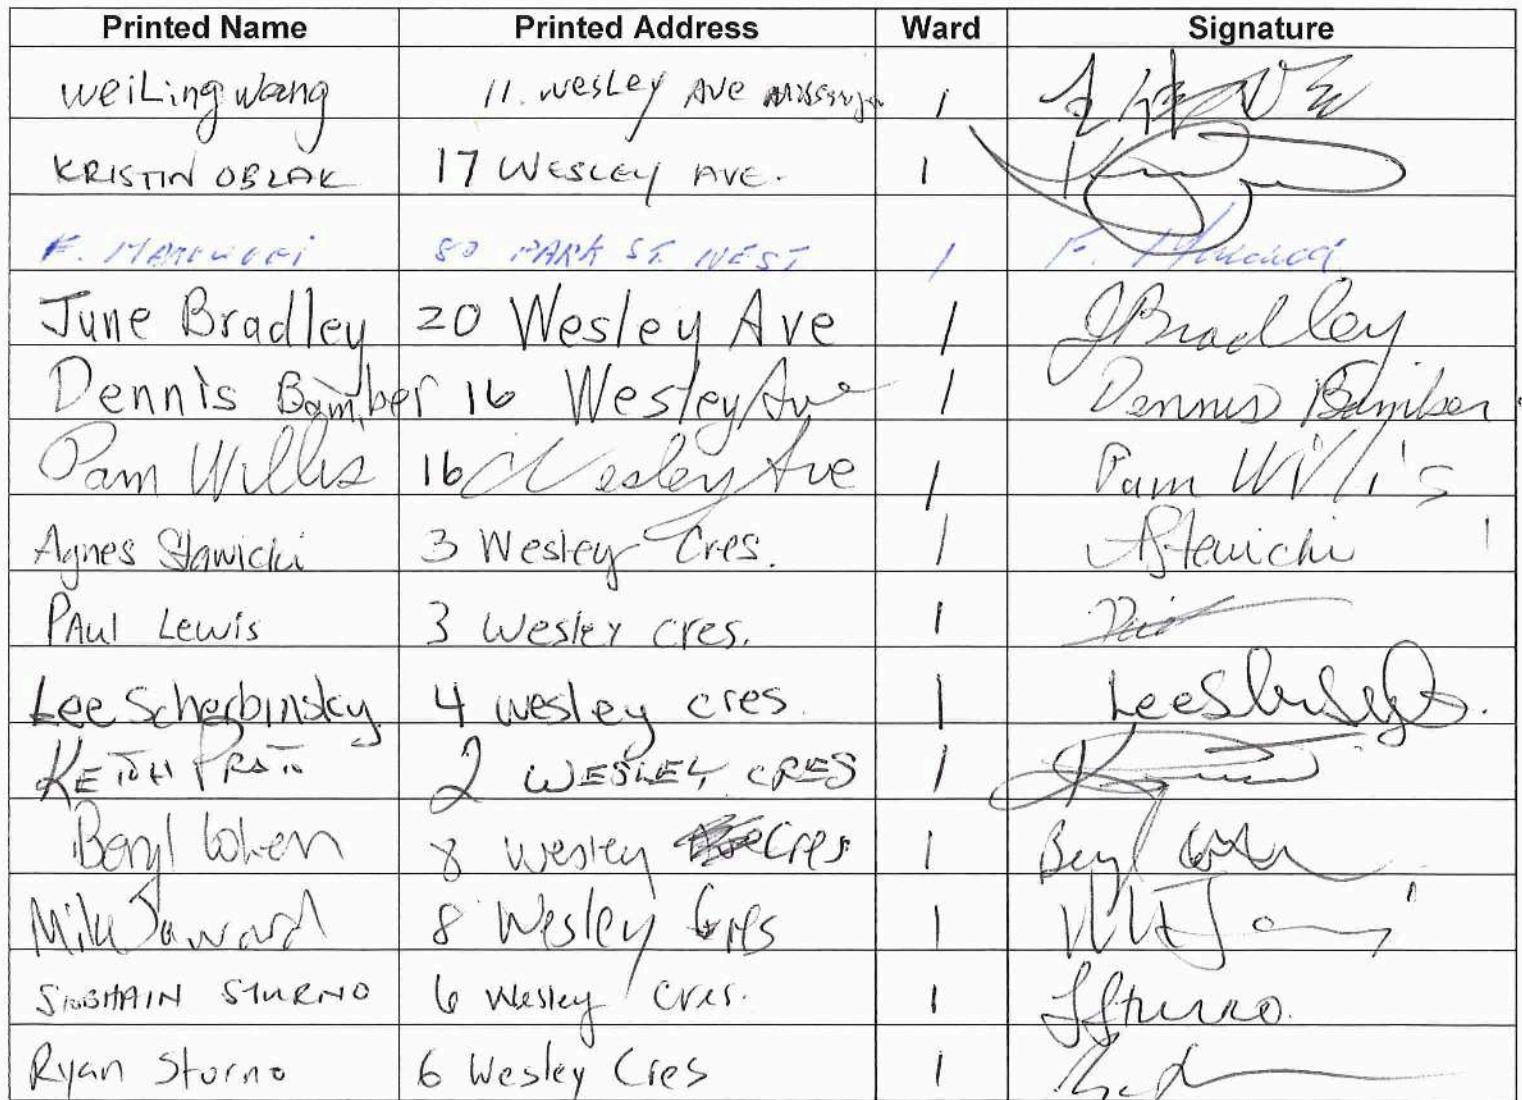 Printed Name Printed Address Ward Signature
WeiLing Wang 11. Wesley Ave 1
KRISTIN OBLAK 17 WESLEY AVE. 1
F. 80 PARK ST. WEST 1 F.
June Bradley 20 Wesley Ave 1 JBradley
Dennis Bamber 16 Wesley Ave 1 Dennis Bamber
Pam Willis 16 Wesley Ave 1 Pam Willis
Agnes Stawicki 3 Wesley Cres. 1
PAul Lewis 3 Wesley cres. 1
Lee Scherbinsky 4 wesley cres. 1
KEITH 2 WESLEY CRES 1
Beryl Cohen 8 Wesley Cres 1 Beryl
Mike 8 Wesley Cres 1
SIOBHAIN STURNO 6 Wesley Cres. 1 SSturno
Ryan Sturno 6 Wesley Cres 1